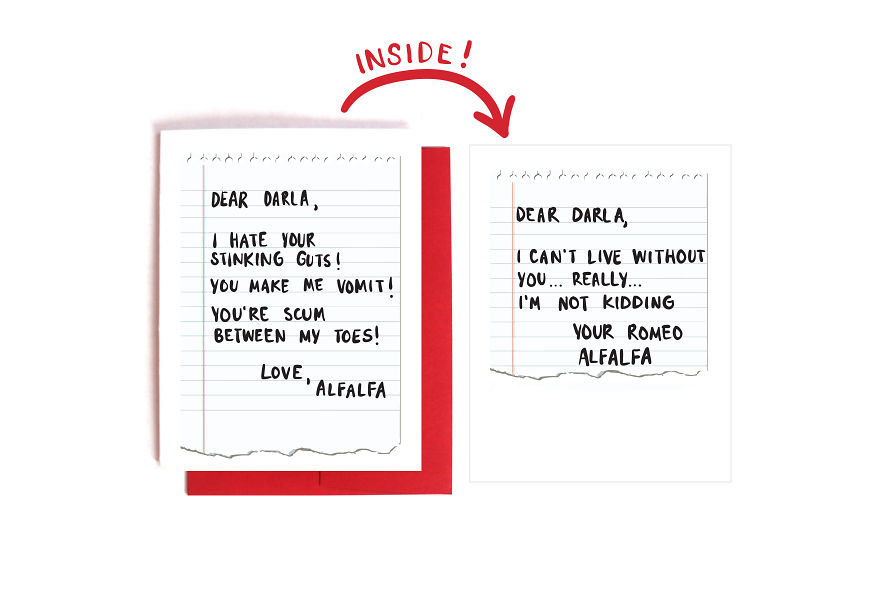 INSIDE!
DEAR DARLA,
I HATE YOUR
STINKING GUTS!
YOU MAKE ME VOMIT!
YOU'RE SCUM
BETWEEN MY TOES!
LOVE,
ALFALFA
DEAR DARLA,
I CAN'T LIVE WITHOUT
YOU... REALLY...
I'M NOT KIDDING
YOUR ROMEO
ALFALFA